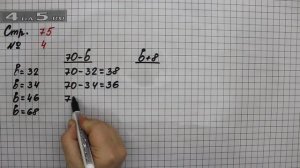 4APOK.RU
Стр. 75
№ 4
70-в
в+8
в=32
70-32=38
в=34
70-34=36
в=46
7
в=68